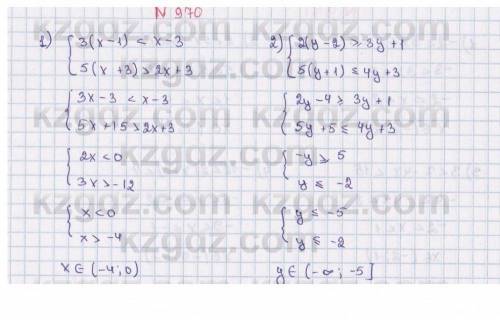 N 970
1) { 3(x-1) < x-3
5(x+3) > 2x+3
{ 3x-3 < x-3
5x+15 > 2x+3
{ 2x < 0
3x > -12
{ x < 0
x > -4
x ∈ (-4; 0)
2) { 2(y-2) ≥ 3y+1
5(y+1) ≤ 4y+3
{ 2y-4 ≥ 3y+1
5y+5 ≤ 4y+3
{ -y ≥ 5
y ≤ -2
{ y ≤ -5
y ≤ -2
y ∈ (-∞; -5]
kzgdz.com kzgdz.com
kzgdz.com kzgdz.com
kzgdz.com kzgdz.com
kzgdz.com kzgdz.com